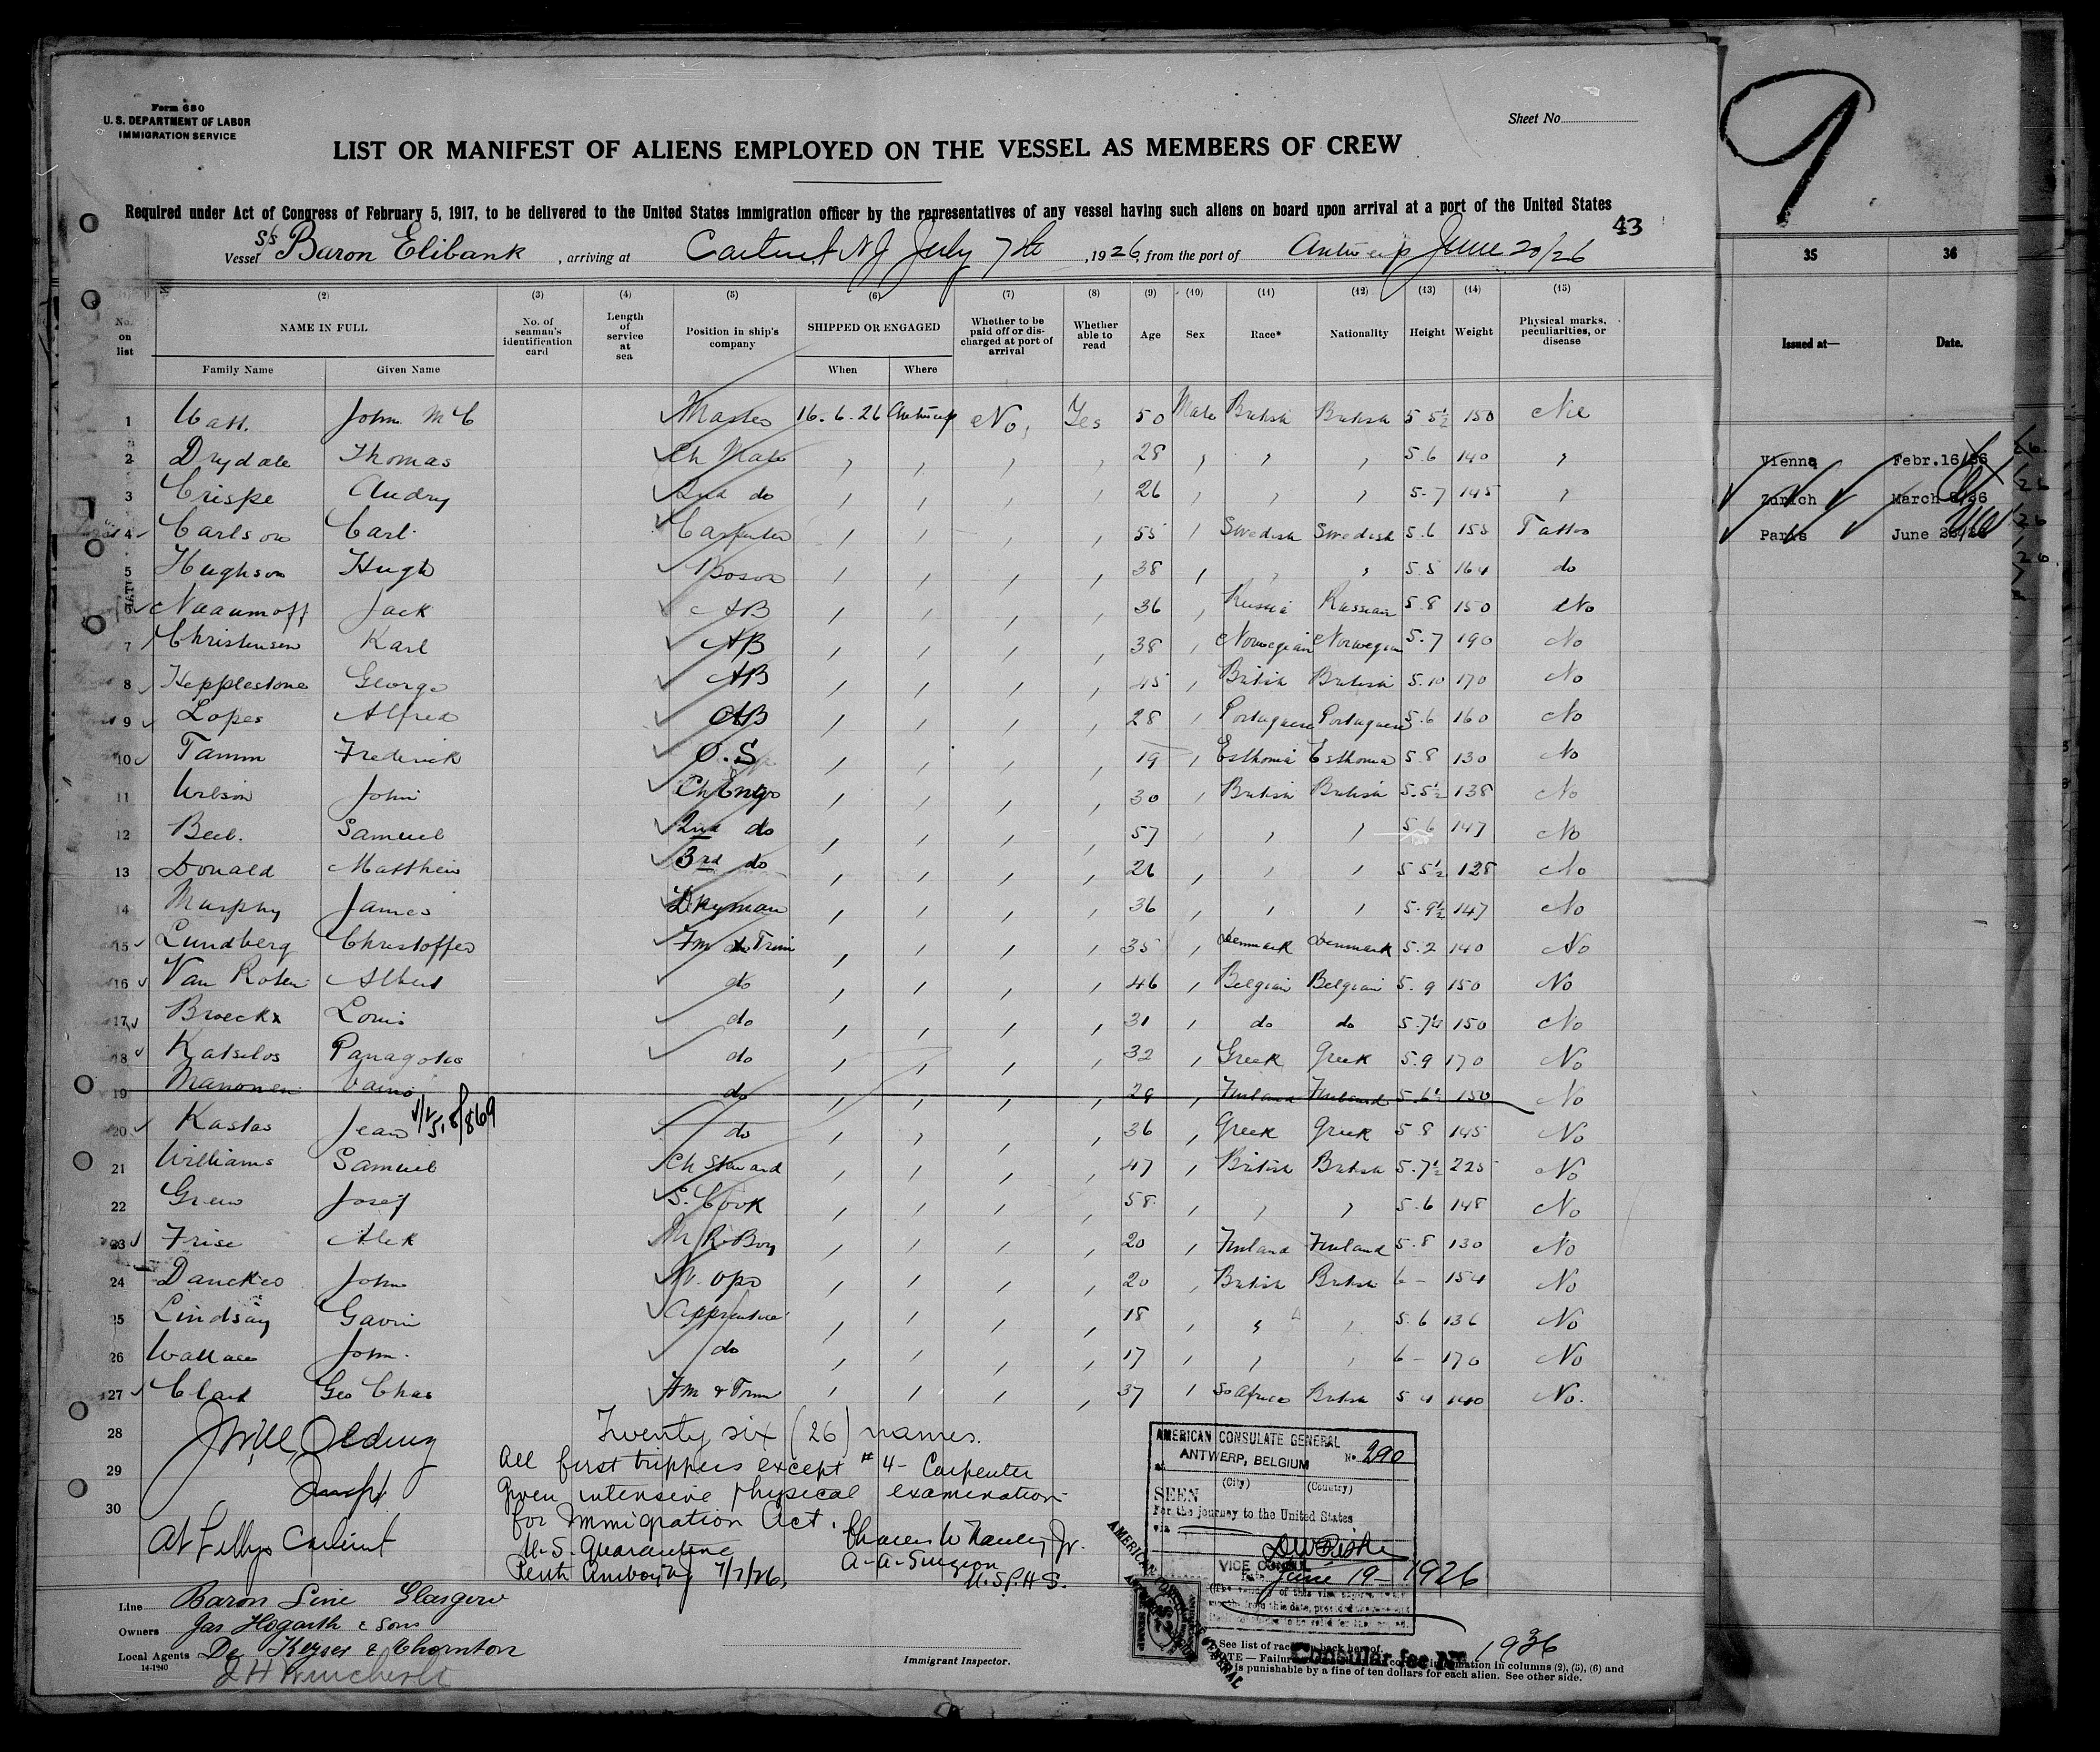 Form 680
U. S. DEPARTMENT OF LABOR
IMMIGRATION SERVICE
Sheet No.
LIST OR MANIFEST OF ALIENS EMPLOYED ON THE VESSEL AS MEMBERS OF CREW
Required under Act of Congress of February 5, 1917, to be delivered to the United States immigration officer by the representatives of any vessel having such aliens on board upon arrival at a port of the United States
43
Vessel S/S Baron Elibank, arriving at Carteret NJ July 7th, 1926, from the port of Antwerp June 20/26
(2) (3) (4) (5) (6) (7) (8) (9) (10) (11) (12) (13) (14) (15)
No. on list NAME IN FULL No. of seaman's identification card Length of service at sea Position in ship's company SHIPPED OR ENGAGED Whether to be paid off or discharged at port of arrival Whether able to read Age Sex Race* Nationality Height Weight Physical marks, peculiarities, or disease
Family Name Given Name When Where
1 Watt. John McC Master 16.6.26 Antwerp No, Yes 50 Male British British 5 5½ 150 Nil
2 Drydale Thomas Ch Mate " " " " 28 " " " 5.6 140 "
3 Crispe Audry 2nd do " " " " 26 " " " 5.7 145 "
4 Carlson Carl Carpenter " " " " 55 " Swedish Swedish 5.6 155 Tattoo
5 Hughson Hugh Boson " " " " 38 " " " 5.5 164 do
6 Naaumoff Jack AB " " " " 36 " Russia Russian 5.8 150 No
7 Christensen Karl AB " " " " 38 " Norwegian Norwegian 5.7 190 No
8 Hepplestone George AB " " " " 45 " British British 5.10 170 No
9 Lopes Alfred AB " " " " 28 " Portuguese Portuguese 5.6 160 No
10 Tamm Frederick O.S " " " " 19 " Esthonia Esthonia 5.8 130 No
11 Wilson John Ch Engr " " " " 30 " British British 5.5½ 138 No
12 Bell. Samuel 2nd do " " " " 57 " " " 5.6 147 No
13 Donald Matthew 3rd do " " " " 26 " " " 5 5½ 128 No
14 Murphy James Dkyman " " " " 36 " " " 5.9½ 147 No
15 Lundberg Christoffer Fm & Trim " " " " 35 " Denmark Denmark 5.2 140 No
16 Van Roten Albert do " " " " 46 " Belgian Belgian 5.9 150 No
17 Broeckx Louis do " " " " 31 " do do 5.7½ 150 No
18 Katselos Panagotis do " " " " 32 " Greek Greek 5.9 170 No
19 Manonen Vaino do " " " " 29 " Finland Finland 5.6½ 150 No
20 Kastas Jean do " " " " 36 " Greek Greek 5 8 145 No
21 Williams Samuel Ch Steward " " " " 47 " British British 5.7½ 225 No
22 Grew Josef S. Cook " " " " 58 " " " 5.6 148 No
23 Frise Alek M R Boy " " " " 20 " Finland Finland 5.8 130 No
24 Danckes John W. Opr " " " " 20 " British British 6 - 154 No
25 Lindsay Gavin Apprentice " " " " 18 " " " 5.6 136 No
26 Wallace John. do " " " " 17 " " " 6 - 170 No
27 Clark Geo Chas Fm & Trim " " " " 37 " So Africa British 5 4 140 No.
28
29
30
Twenty six (26) names.
All first trippers except #4 - Carpenter
Given intensive physical examination
for Immigration Act.
U. S. Quarantine
Perth Amboy NJ 7/7/26,
A. A. Surgeon
U.S.P.H.S.
AMERICAN CONSULATE GENERAL
at ANTWERP, BELGIUM No 290
(City) (Country)
SEEN
For the journey to the United States
via
VICE CONSUL
June 19 - 1926
AMERICAN CONSULATE GENERAL
Line Baron Line Glasgow
Owners Jas Hogarth & Sons
Local Agents De Keyser & Thornton
14-1240
Immigrant Inspector.
Consular fee No 1936
*See list of races on back hereof.
NOTE — Failure information in columns (2), (5), (6) and
is punishable by a fine of ten dollars for each alien. See other side.
9
35 36
Issued at— Date.
Vienna Febr.16/26
Zurich March
Paris June